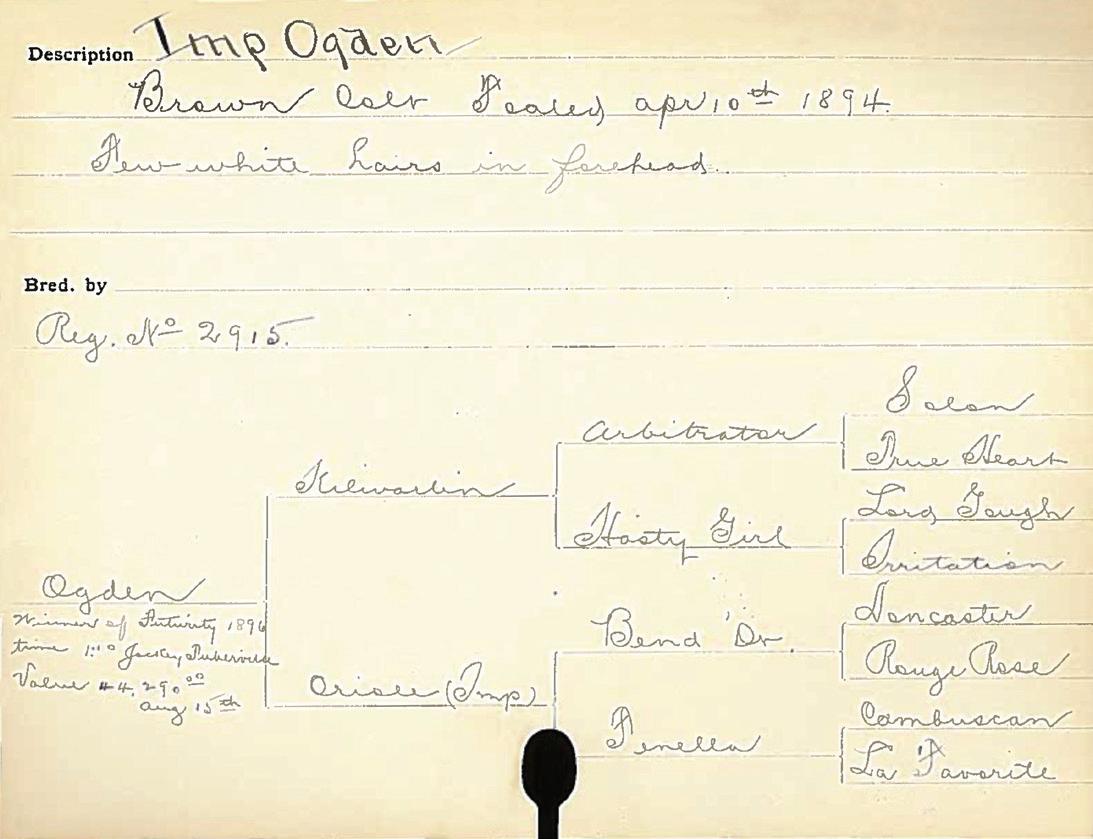 Description Imp Ogden
Brown Colt Foaled Apr 10th 1894.
Few white hairs in forehead.
Bred. by
Reg. No 2915.
Solon
Arbitrator
True Heart
Kilwarlin
Lord Gough
Hasty Girl
Irritation
Ogden
Doncaster
Winner of Futurity 1896
Bend 'Or.
time 1:10 Jockey Tuberville
Rouge Rose
Value 44,290.00
Oriole (Imp)
Aug 15th
Cambuscan
Fenella
La Favorite